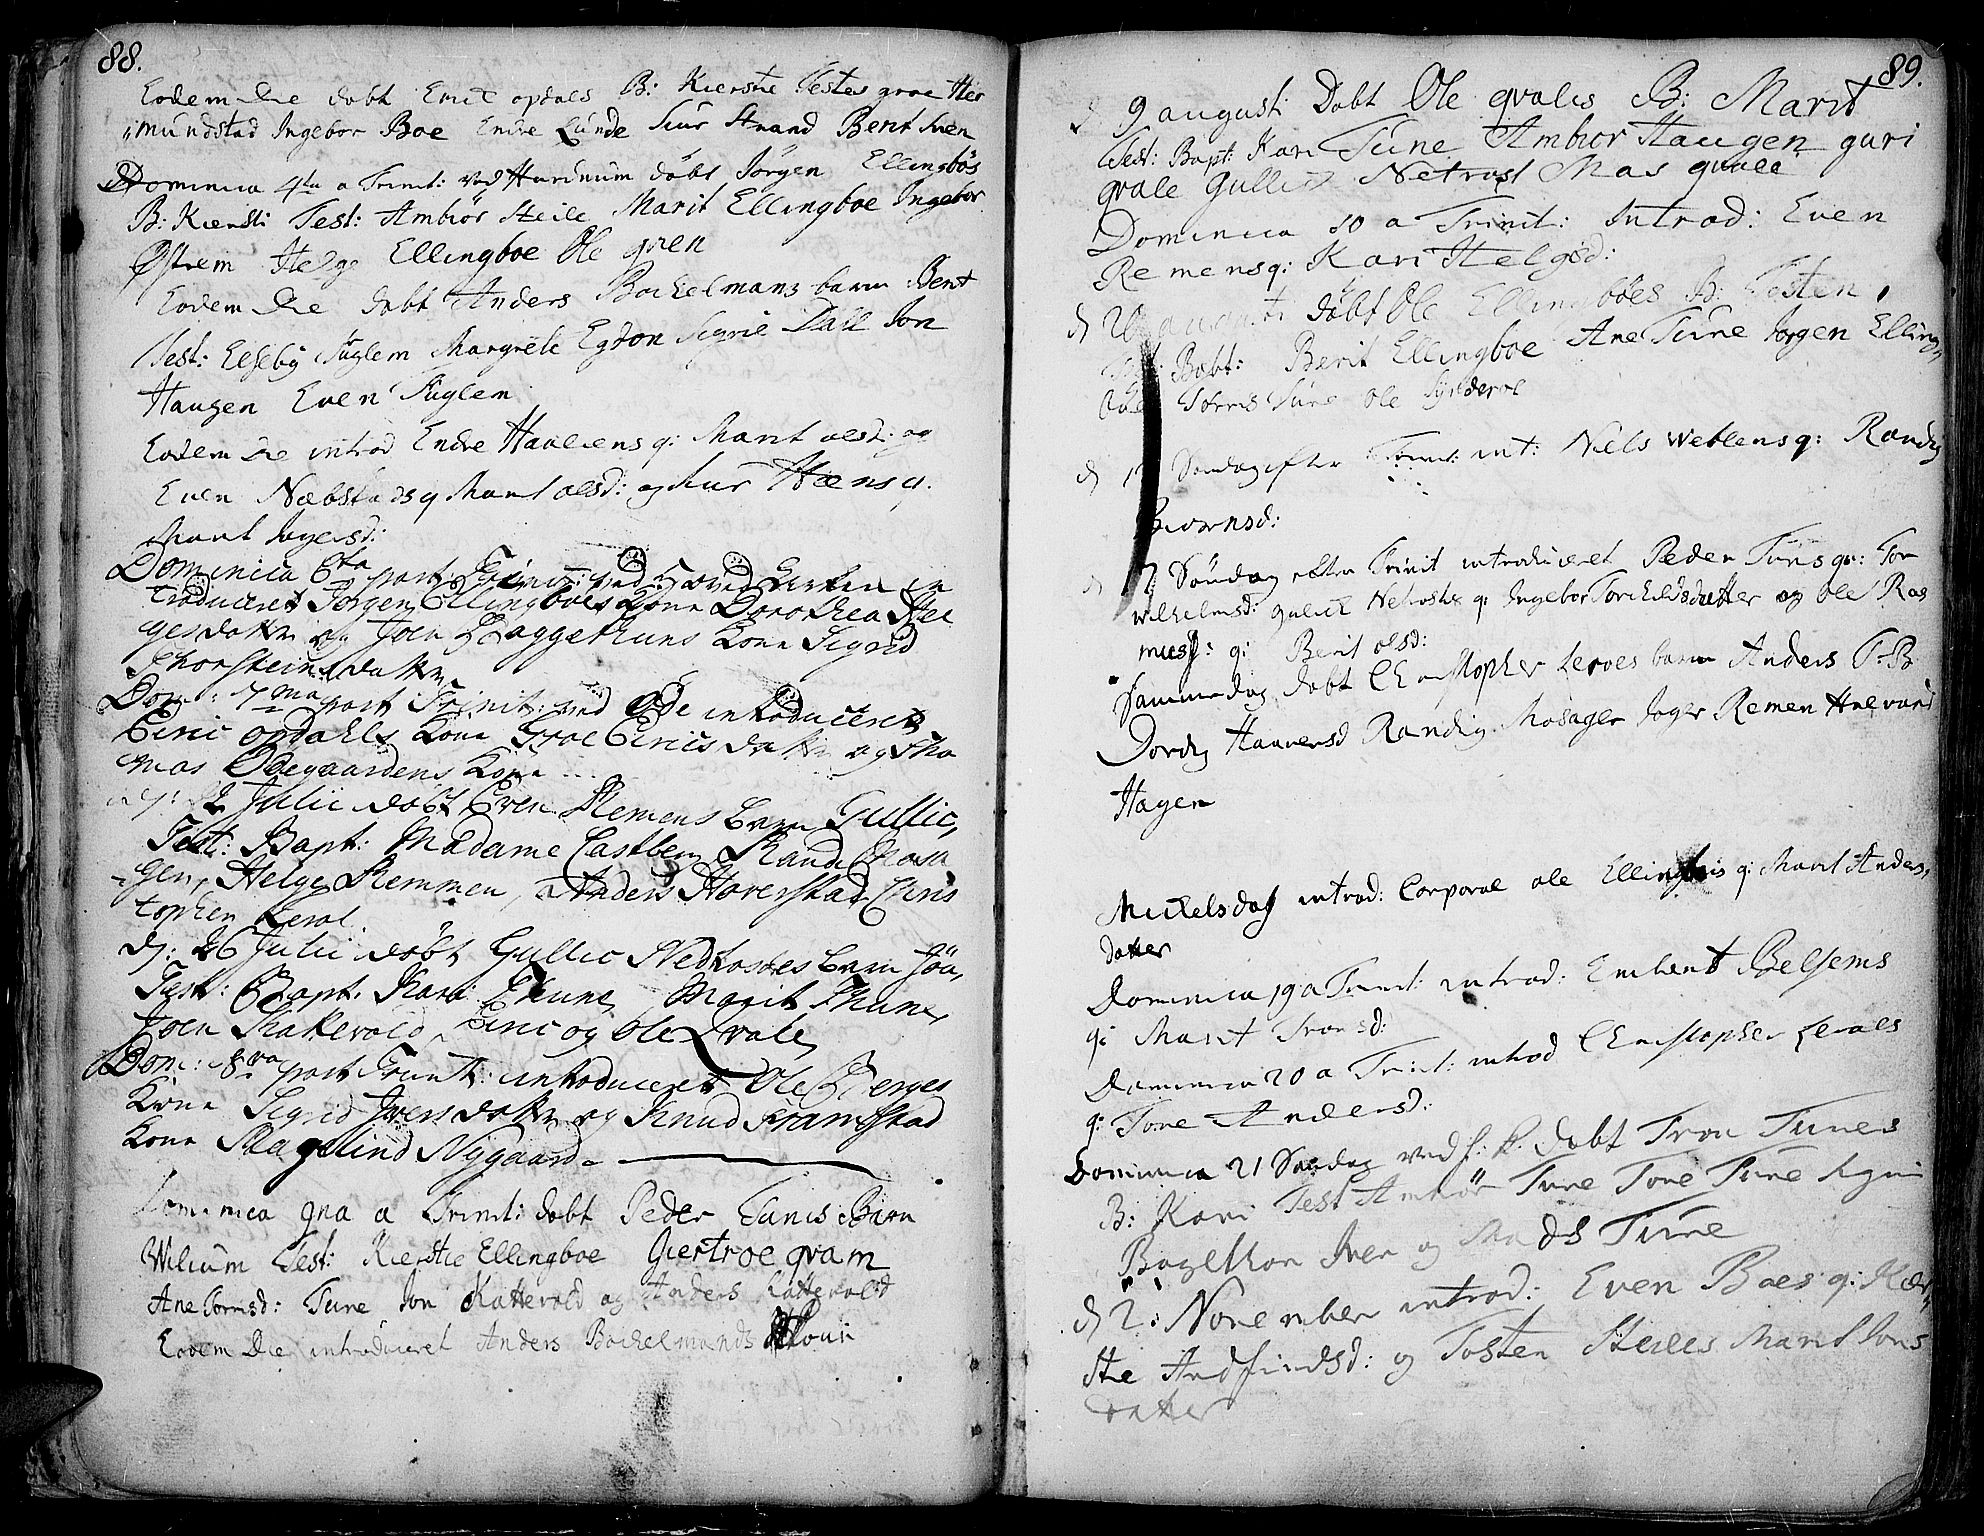 88.
Eodem Die døbt Eric opdals B: Kierstie Testes groe Her
mundstad Ingebor Boe Endre Lunde Siur Strand Berit Sven
Dominica 4ta a Trinit: ved Hurdnum døbt Jørgen Ellingbøs
B: Kiersti Test: Ambiør Steile Marit Ellingboe Ingebor
Østrem Helge Ellingboe Ole gren
Eodem Die døbt Anders Bockelmans barn Bent
Test: Elseby Fuglem Margrete Egton Sigrie Dall Jon
Haugen Even Fuglem
Eodem Die introd Endre Haaliens q: Marit olsd: og
Even Næbstads q Marit olsd: og Siur Hæns q.
Marit Ingersd:
Dominica 6ta post Trinit: ved Hoved Kirken in
troduceret Jørgen Ellingboes Kone Dorothea Hel
gesdatter og Joen Baggethuns Kone Sigrid
Thorsteinsdatter
Dom: 7ma post Trinit: ved Øde introduceret
Eiric opdahls Kone Groe Eiricsdatter og Tho
mas Ødegaardens Kone ...
dj: 2 Julii døbt Even Remens barn Gullic,
Test: Bapt: Madame Castberg Randi Mosa
gen, Helge Remmen, Anders Hoverstad Chris
topher Lerol.
dj: 26 Julii døbt Gullic Nedrostes barn Jøn,
Test: Bapt: Kari Thune, Marit Thune,
Joen Kattevold, Eiric og Ole Qvale,
Dom: 8va post Trinit: introduceret Ole Berges
Kone Sigrid Iversdatter og Knud Framstad
Kone Ragnlind Nygaard.
Dominica 9na a Trinit: døbt Peder Tunes Barn
Wilium Test: Kierstie Ellingboe Giertroe qvam
Ane Tormsd: Tune Jon Kattevold og Anders Kattevold
Eodem Die introduceret Anders Bockelmands Kone
89.
d 9 august: Døbt Ole qvales B: Marit
Test: Bapt: Kari Tune Ambiør Haugen guri
qvale Gullic Netrost Mas qvale
Dominica 10 a Trinit: Introd: Even
Remens q: Kari Helgisd:
dj 20 august: døbt Ole Ellingbøes B: Testen
Test: Babt: Berit Ellingboe Ane Tune Jørgen Elling
boe Torris Tune Ole Sylderoe
dj 12 Søndag efter Trinit: int: Niels Weblens q: Randig
Biørnsd:
Søndag efter Trinit introduceret Peder Tuns q: Tor
Wilhelmsd: gulick Netroste q: Ingebor Torchildsdatter og ole Ras
musj: q: Berit olsd:
Sammedag døbt Christopher Leroes barn Anders T: B
Dordy Haaversd Randig Mosagen Inger Remen Halvard
Hagen
Mickelsdag introd: Corporal ole Ellingbøis q: Marit Anders
datter
Dominica 19 a Trinit: introd: Embrent Belsems
q: Marit Tronsd:
Dominica 20 a Trinit: introd Christopher Leroes
q: Tore Andersd:
Dominica 21 Søndag ved H: K: døbt Tron Tunes
B: Kari Test Ambiør Tune Tore Tune Ragni
Bagethon Iver og Mads Tune
dj 2: November introd: Even Boes q: Kier
stie Andfindsd: og Tosten Steiles Marit Jons
datter